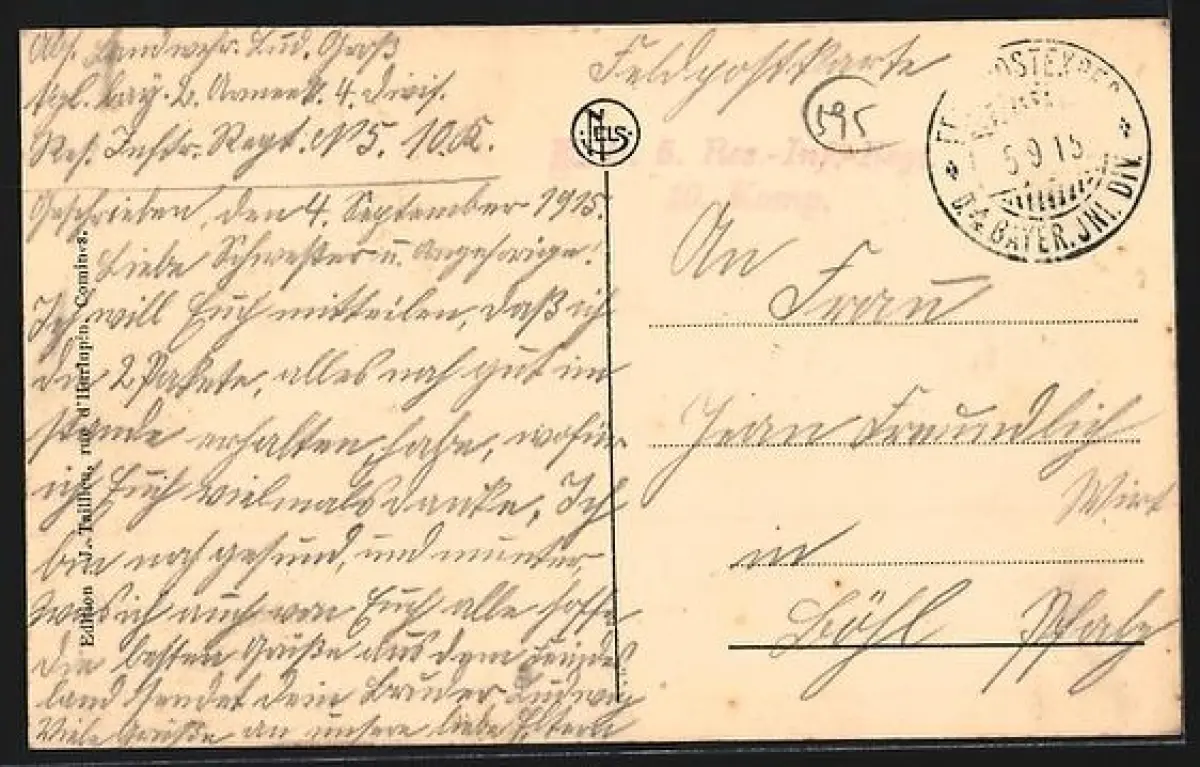 Abs. Landwehr. Lud. Groß
kgl. bay. 2. Armeek. 4. Divis.
Res. Inftr. Regt. N 5. 10. K.
Geschrieben, den 4. September 1915.
Liebe Schwester u. Angehörige!
Ich will Euch mitteilen, daß ich
die 2 Pakete, alles noch gut im
stande erhalten habe, wofür
ich Euch vielmals danke, Ich
bin noch gesund, und munter,
was ich auch von Euch alle hoffe
Die besten Grüße aus dem Feindes
land sendet dein Bruder Ludwig
Viele Grüße an unsere liebe Eltern
Edition J. Taillieu, rue d'Hurlupin, Comines.
NELS
Feldpostkarte
595
5. Res.-Inf.-Regt.
10. Komp.
POSTEXPED.
5 9 15
D. 4. BAYER. INF. DIV.
An
Frau
Jean Freundlich
Wirt
in
Böhl Pfalz